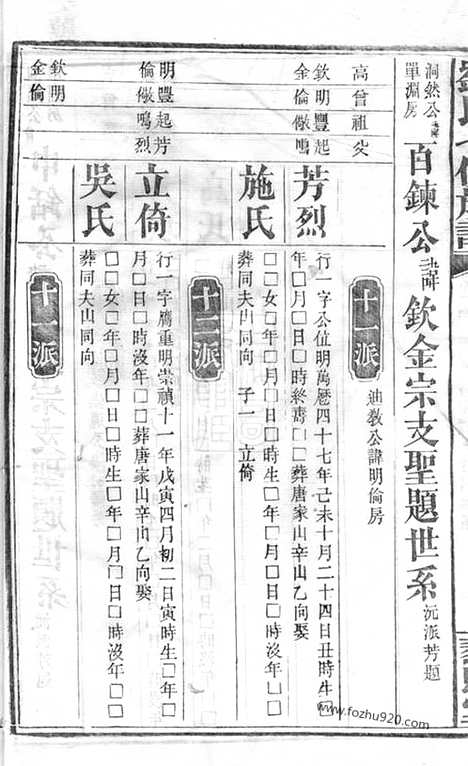 洞然公諱
單淵房
百鍊公諱欽金宗支聖題世系
沅派芳題
十一派
迪教公諱明倫房
高曾祖父
欽明豐起
金倫儆鳴
芳烈
行一字公位明萬曆四十七年己未十月二十四日丑時生□
年□月□日□時終壽□□葬唐家山辛山乙向娶
施氏
□□女□年□月□日□時生□年□月□日□時沒年□□
葬同夫山同向　子一　立倚
十二派
明豐起芳
倫儆鳴烈
立倚
行一字膺重明崇禎十一年戊寅四月初二日寅時生□年□
月□日□時沒年□□葬唐家山辛山乙向娶
吳氏
□□女□年□月□日□時生□年□月□日□時沒年□□
葬同夫山同向
十一派
欽明
金倫
www.fozhu920.com